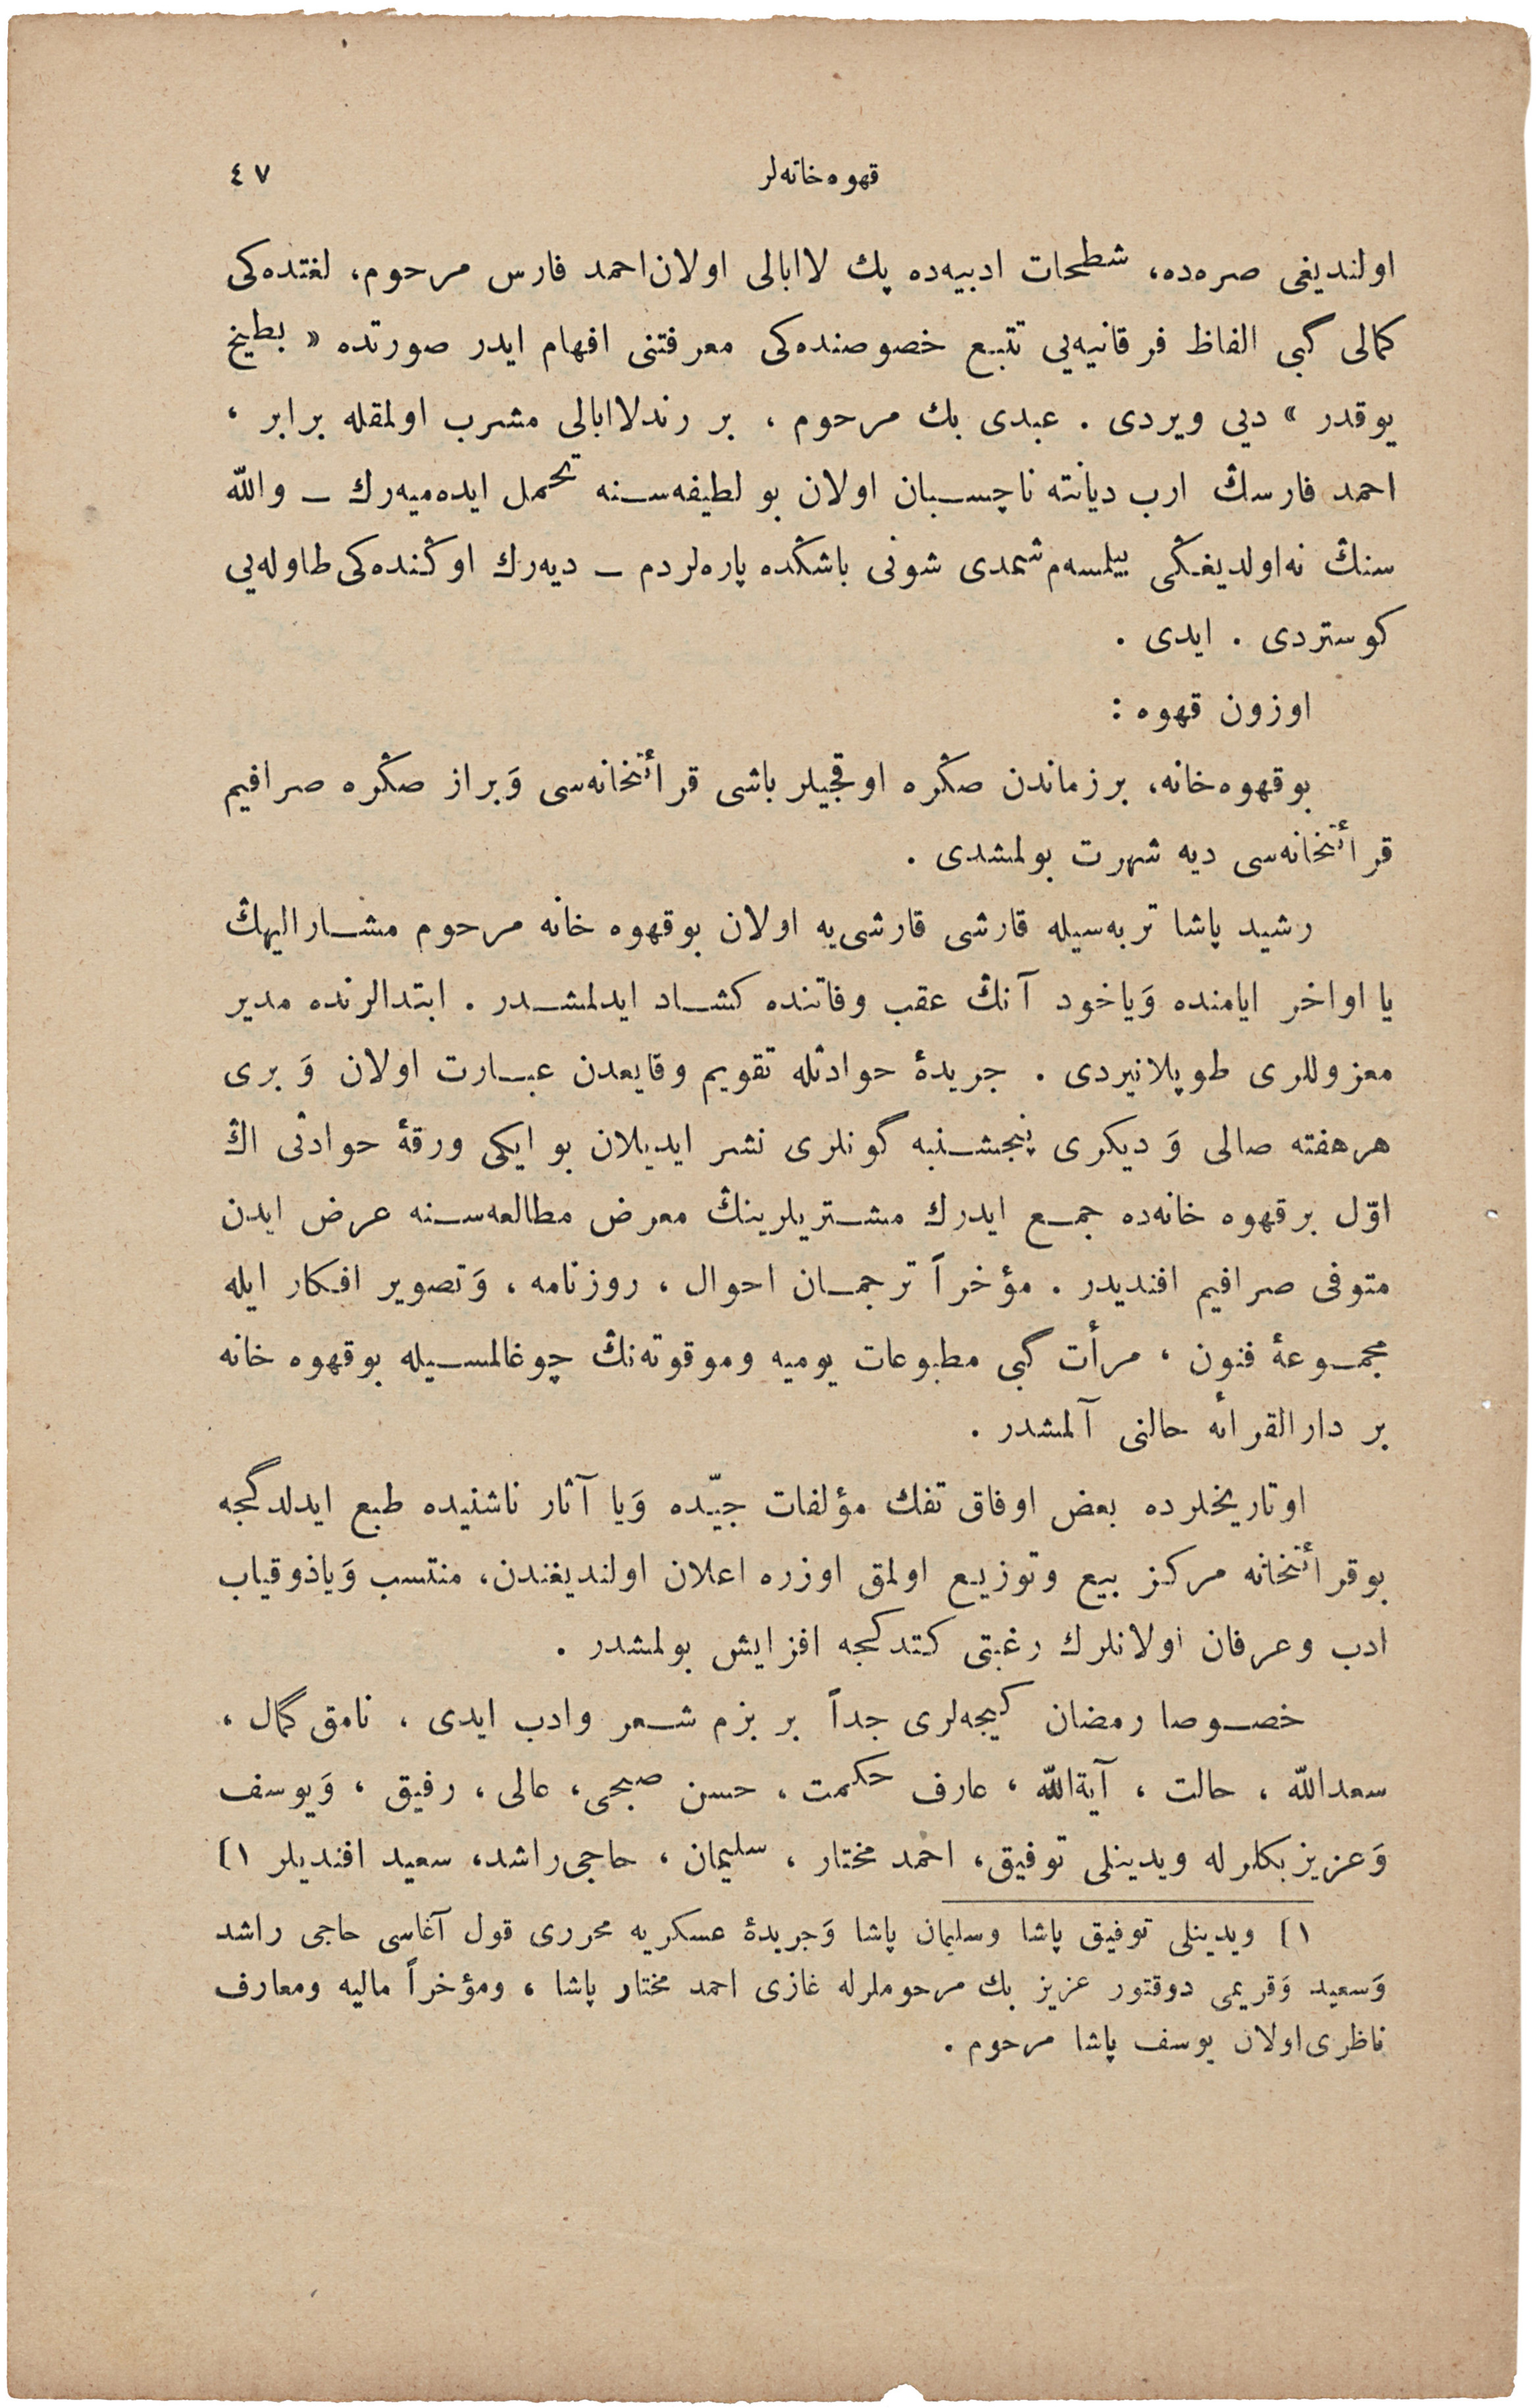 قهوه‌خانه‌لر
٤٧
اولندیغی صره‌ده، شطحات ادبیه‌ده پك لاابالی اولان احمد فارس مرحوم، لغتده‌کی
کمالی گبی الفاظ فرقانیه‌یی تتبع خصوصنده‌کی معرفتنی افهام ایدر صورتده « بطیخ
یوقدر » دیی ویردی . عبدی بك مرحوم ، بر رند لاابالی مشرب اولمقله برابر ،
احمد فارسڭ ارب دیانته ناچسبان اولان بو لطیفه‌سنه تحمل ایده‌میه‌رك ـ والله
سنڭ نه‌اولدیغڭی بیلمسه‌م شمدی شونی باشڭده پاره‌لردم ـ دیه‌رك اوڭنده‌کی طاوله‌یی
کوستردی . ایدی .
اوزون قهوه :
بوقهوه‌خانه، برزماندن صڭره اوقجیلر باشی قرأتخانه‌سی وَبراز صڭره صرافیم
قرأتخانه‌سی دیه شهرت بولمشدی .
رشید پاشا تربه‌سیله قارشی قارشی‌یه اولان بوقهوه خانه مرحوم مشارالیهڭ
یا اواخر ایامنده وَیاخود آنڭ عقب وفاتنده کشاد ایدلمشدر . ابتدالرنده مدیر
معزوللری طوپلانیردی . جریدهٔ حوادثله تقویم وقایعدن عبارت اولان وَ بری
هرهفته صالی وَ دیکری پنجشنبه گونلری نشر ایدیلان بو ایکی ورقهٔ حوادثی اڭ
اوّل برقهوه خانه‌ده جمع ایدرك مشتریلرینڭ معرض مطالعه‌سنه عرض ایدن
متوفی صرافیم افندیدر . مؤخراً ترجمان احوال ، روزنامه ، وَتصویر افکار ایله
مجموعهٔ فنون ، مرأت گبی مطبوعات یومیه وموقوته‌نڭ چوغالمسیله بوقهوه خانه
بر دارالقرأه حالنی آلمشدر .
اوتاریخلرده بعض اوفاق تفك مؤلفات جیّده وَیا آثار ناشنیده طبع ایدلدگجه
بوقرأتخانه مرکز بیع وتوزیع اولمق اوزره اعلان اولندیغندن، منتسب وَیاذوقیاب
ادب وعرفان اولانلرك رغبتی کتدکجه افزایش بولمشدر .
خصوصا رمضان کیجه‌لری جداً بر بزم شعر وادب ایدی ، نامق کمال ،
سعدالله ، حالت ، آیةالله ، عارف حکمت ، حسن صبحی، عالی ، رفیق ، وَیوسف
وَعزیزبکلرله ویدینلی توفیق، احمد مختار ، سلیمان ، حاجی‌راشد، سعید افندیلر ١)
١) ویدینلی توفیق پاشا وسلیمان پاشا وَجریدهٔ عسکریه محرری قول آغاسی حاجی راشد
وَسعید وَقریمی دوقتور عزیز بك مرحوملرله غازی احمد مختار پاشا ، ومؤخراً مالیه ومعارف
ناظری‌اولان یوسف پاشا مرحوم .